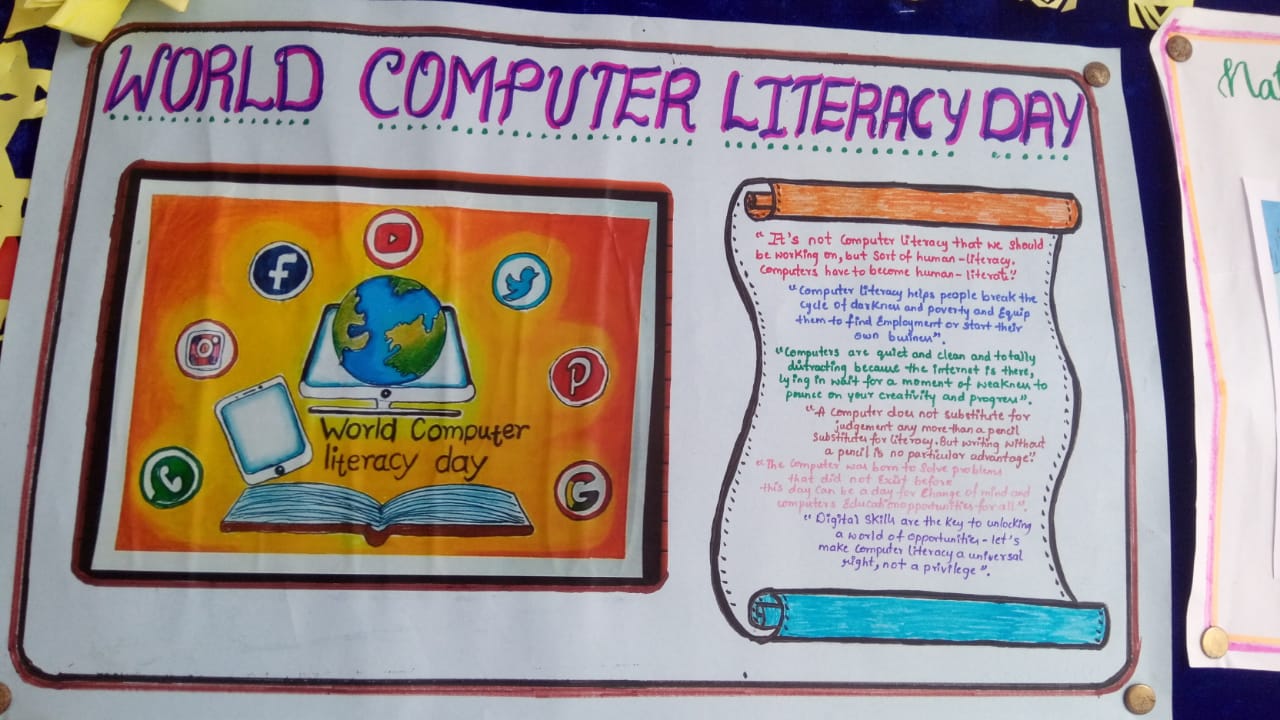 WORLD COMPUTER LITERACY DAY
World Computer
literacy day
"It's not Computer literacy that we should
be working on, but Sort of human-literacy.
Computers have to become human-literate."
"Computer literacy helps people break the
cycle of darkness and poverty and Equip
them to find Employment or start their
own business".
"Computers are quiet and clean and totally
distracting because the internet is there,
lying in wait for a moment of weakness to
pounce on your creativity and progress".
"A Computer does not substitute for
judgement any more than a pencil
Substitutes for literacy. But writing without
a pencil is no particular advantage".
"The Computer was born to Solve problems
that did not Exist before
this day Can be a day for Change of mind and
computers Education opportunities for all".
"Digital Skills are the key to unlocking
a world of opportunities - let's
make Computer literacy a universal
right, not a privilege".
Nat